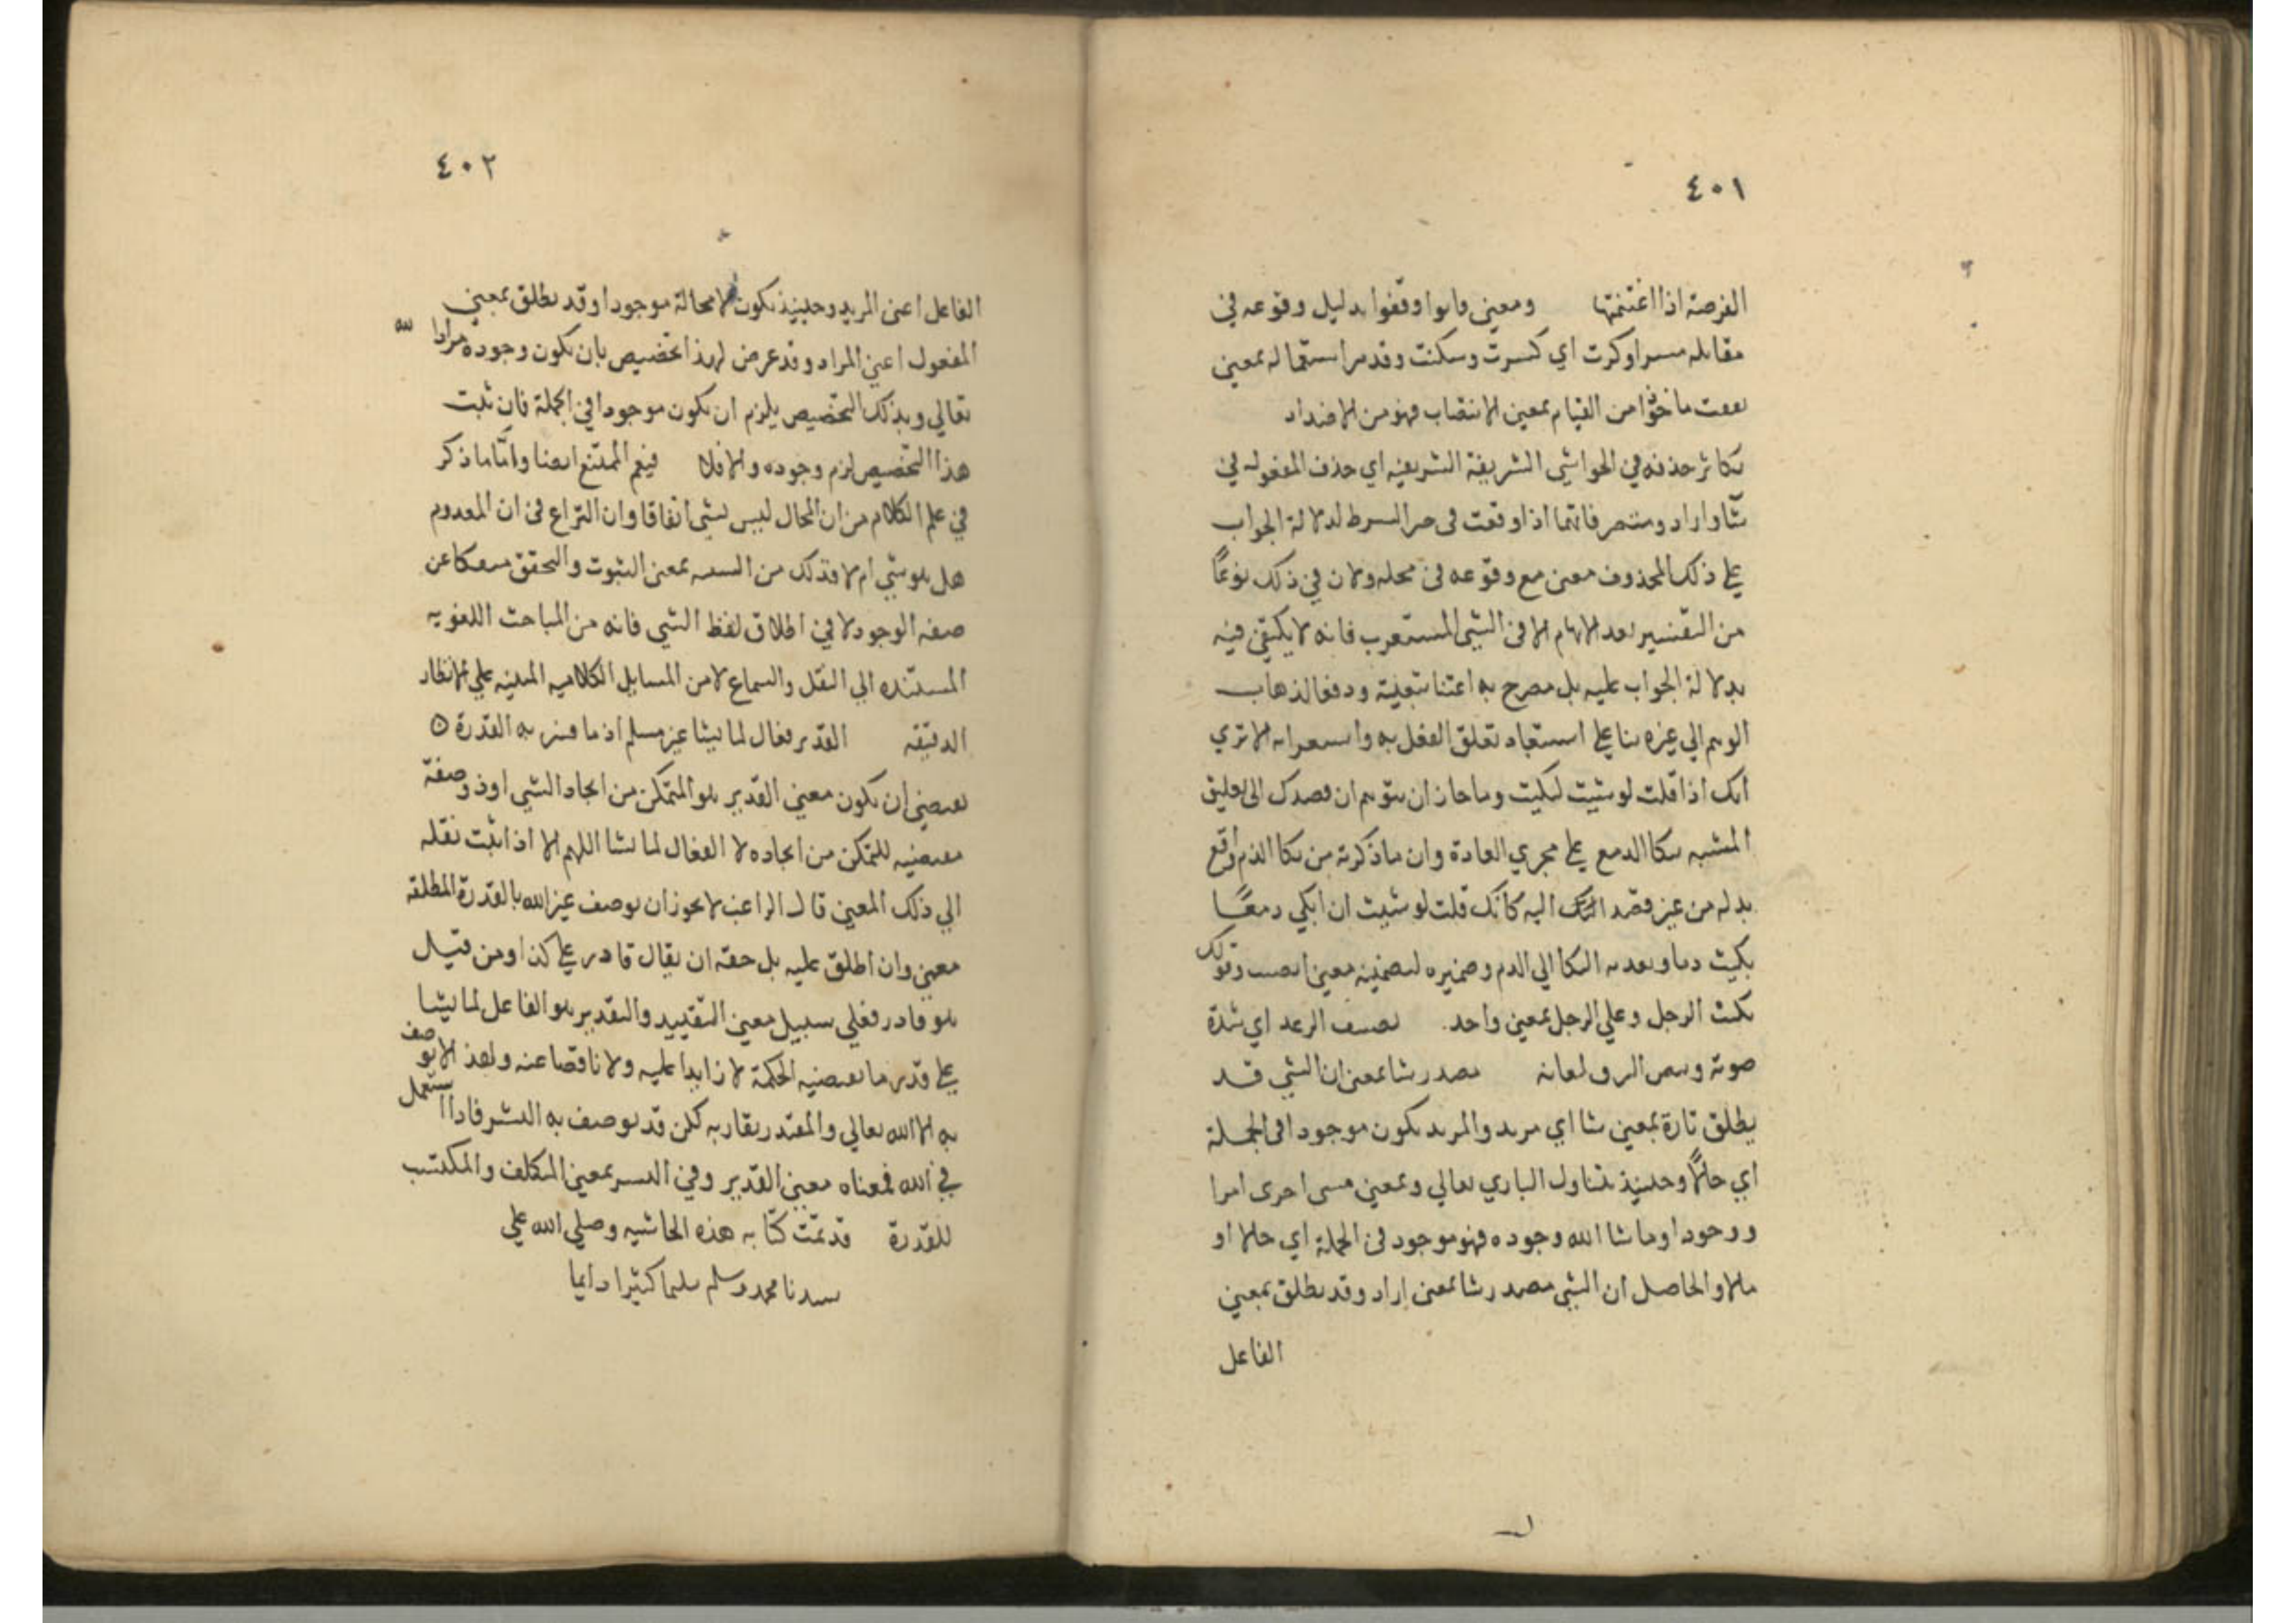 ٤٠١
الفرصة اذا اغتنمتها ومعنى قاموا وقفوا بدليل وقوعه في
مقابله اي كسرت وسكنت وقد مر استعماله بمعنى
ماخوذا من القيام بمعنى الانتصاب فهو من الاضداد
تكاثر حذفه في الحواشي الشريفة الشريفيه اي حذف المفعول في
شا واراد ومتصرفاتهما اذا وقعت في حيز الشرط لدلالة الجواب
على ذلك المحذوف معنى مع وقوعه في محله ولان في ذلك نوعًا
من التفسير بعد الابهام الا في الشي المستغرب فانه لا يكتفي فيه
بدلالة الجواب عليه بل مصرح به اعتنا بتعيينه ودفعا لذهاب
الوهم الي غيره بنا على استبعاد تعلق الفعل به واستغرابه الا تري
انك اذا قلت لو شيت لبكيت دما جاز ان يتوهم ان قصدك الى تعليق
المشيه ببكا الدمع على مجري العادة وان ما ذكرته من بكا الدم واقع
بدله من غير قصد اليه كانك قلت لو شيت ان ابكي دمعًا
بكيت دما وتعديه البكا الي الدم وضميره لتضمينه معنى الصب وقولك
بكيت الرجل وعلي الرجل بمعنى واحد. لقصيف الرعد اي شدة
صوته ووميض البرق لمعانه مصدر شا بمعنى ان الشي قد
يطلق تارة بمعنى شا اي مريد والمريد يكون موجودا في الجملة
اي حالًا وحينيذ يتناول الباري تعالي وبمعنى مشى اخرى امرا
ووجودا وما شا الله وجوده فهو موجود في الجملة اي حالا او
مالا والحاصل ان الشي مصدر شا بمعنى اراد وقد يطلق بمعنى
الفاعل
٤٠٢
الفاعل اعنى المريد وحينيذ يكون لا محالة موجودا وقد يطلق بمعنى
المفعول اعني المراد وقد عرض لهذا تخصيص بان يكون وجوده مرادا لله
تعالي وبذلك التخصيص يلزم ان يكون موجودا في الجملة فان ثبت
هذا التخصيص لزم وجوده والا فلا فيعم الممتنع ايضا وامّا ما ذكر
في علم الكلام من ان المحال ليس بشي اتفاقا وان النزاع في ان المعدوم
هل هو شي ام لا فذلك من الشييه بمعنى الثبوت والتحقق منفكا عن
صفه الوجود لا في اطلاق لفظ الشي فانه من المباحث اللغويه
المستنده الي النقل والسماع لا من المسايل الكلاميه المبنيه علي الانظار
الدقيقه القدير فعال لما يشا غير مسلم اذ ما فسر به القدرة
يقتضي ان يكون معنى القدير هو المتمكن من ايجاد الشي او ذو صفة
مقتضيه للتمكن من ايجاده لا الفعال لما يشا اللهم الا اذا ثبت نقله
الي ذلك المعنى قال الراغب لا يجوز ان يوصف غير الله بالقدرة المطلقه
معنى وان اطلق عليه بل حقه ان يقال قادر على كذا ومن قيل
هو قادر فعلي سبيل معنى التقييد والقدير هو الفاعل لما يشا
على قدر ما تقتضيه الحكمة لا زايدا عليه ولا ناقصا عنه ولهذا لا يوصف
به الا الله تعالي والمقتدر يقاربه لكن قد يوصف به البشر فاذا استعمل
في الله فمعناه معنى القدير وفي البشر بمعنى المتكلف والمكتسب
للقدرة قد تمّت كتابه هذه الحاشيه وصلي الله علي
سيدنا محمد وسلم تسليما كثيرا دايما